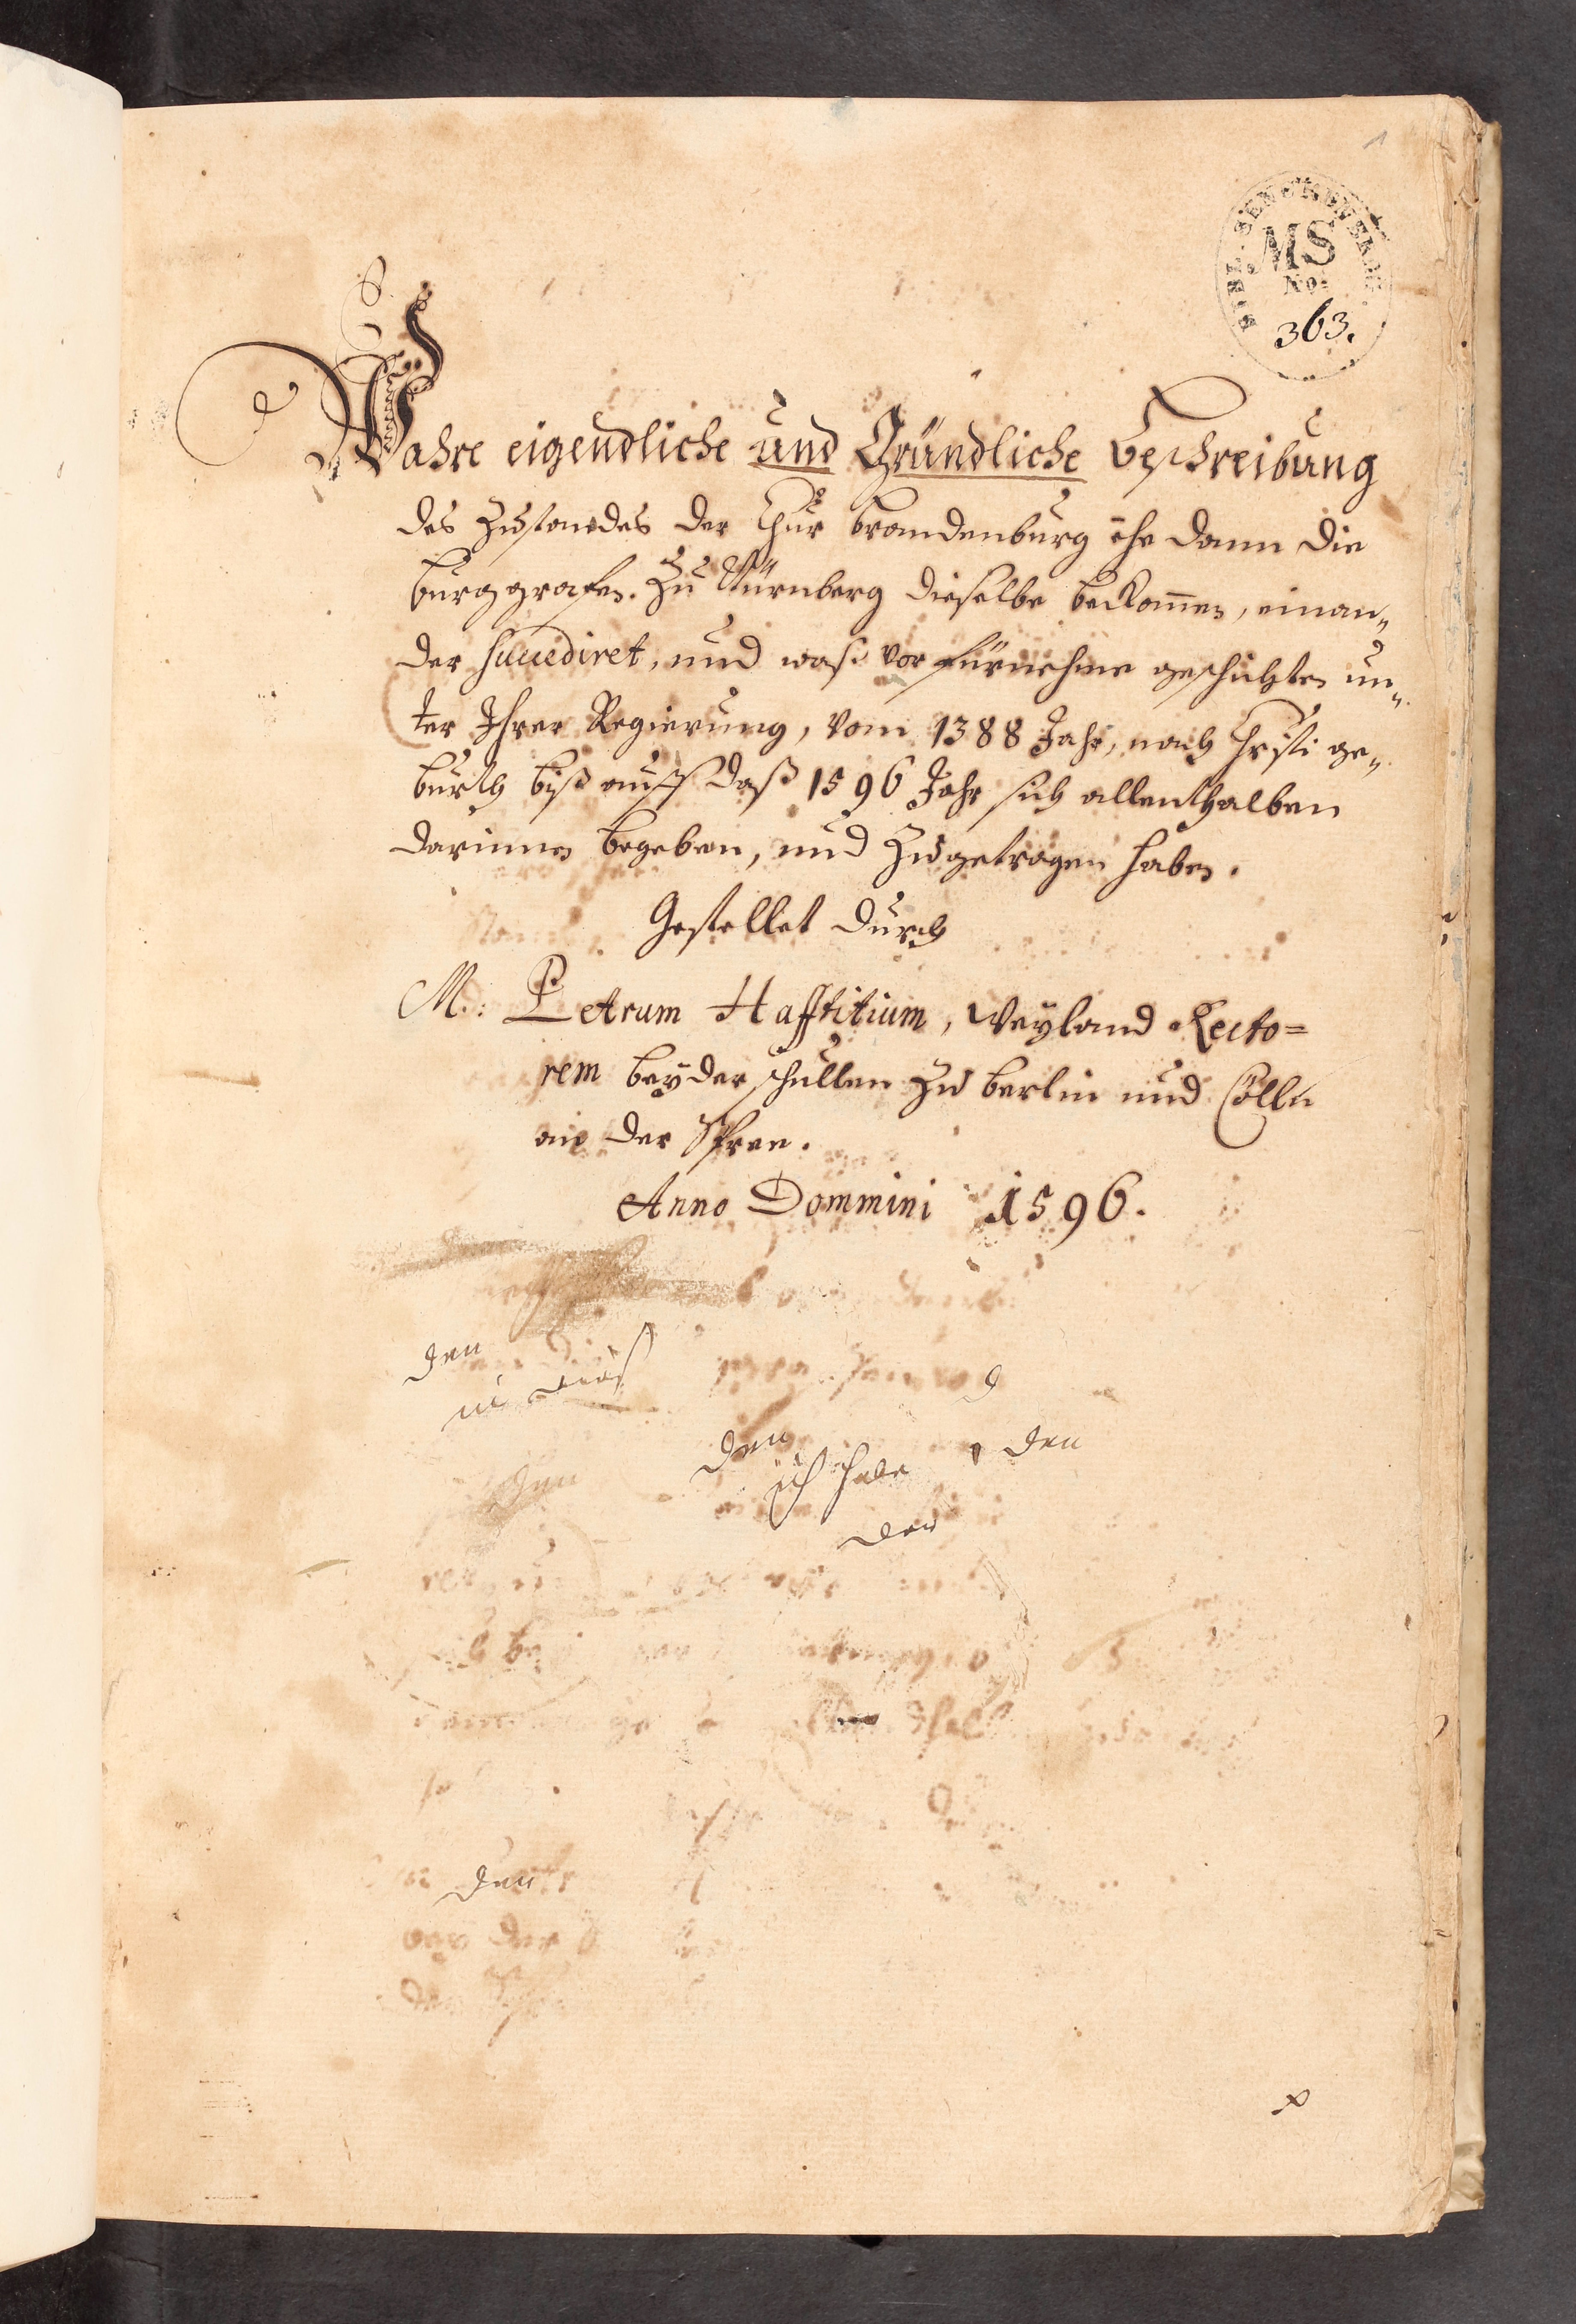 1
BIBL. SENCKENBERG.
MS
No.
363.
Wahre eigendliche und Gründliche Beschreibung
des Zustandes der Chur Brandenburg ehe dann die
Burggrafen. Zu Nürnberg dieselbe bekom̄en, einan„
der succediret, und waß vor fürnehme geschichten un„
ter Ihrer Regierung, vom 1388 Jahr, nach Christi ge„
burth biß auff daß 1596 Jahr sich allenthalben
darinnen begeben, und Zugetragen haben.
Gestellet durch
M.: Petrum Hafftitium, Weyland Recto=
rem beyder schullen Zu Berlin und Cölln
an der Spree.
Anno Dommini 1596.
den
d
den
ich habe den
den
der
den